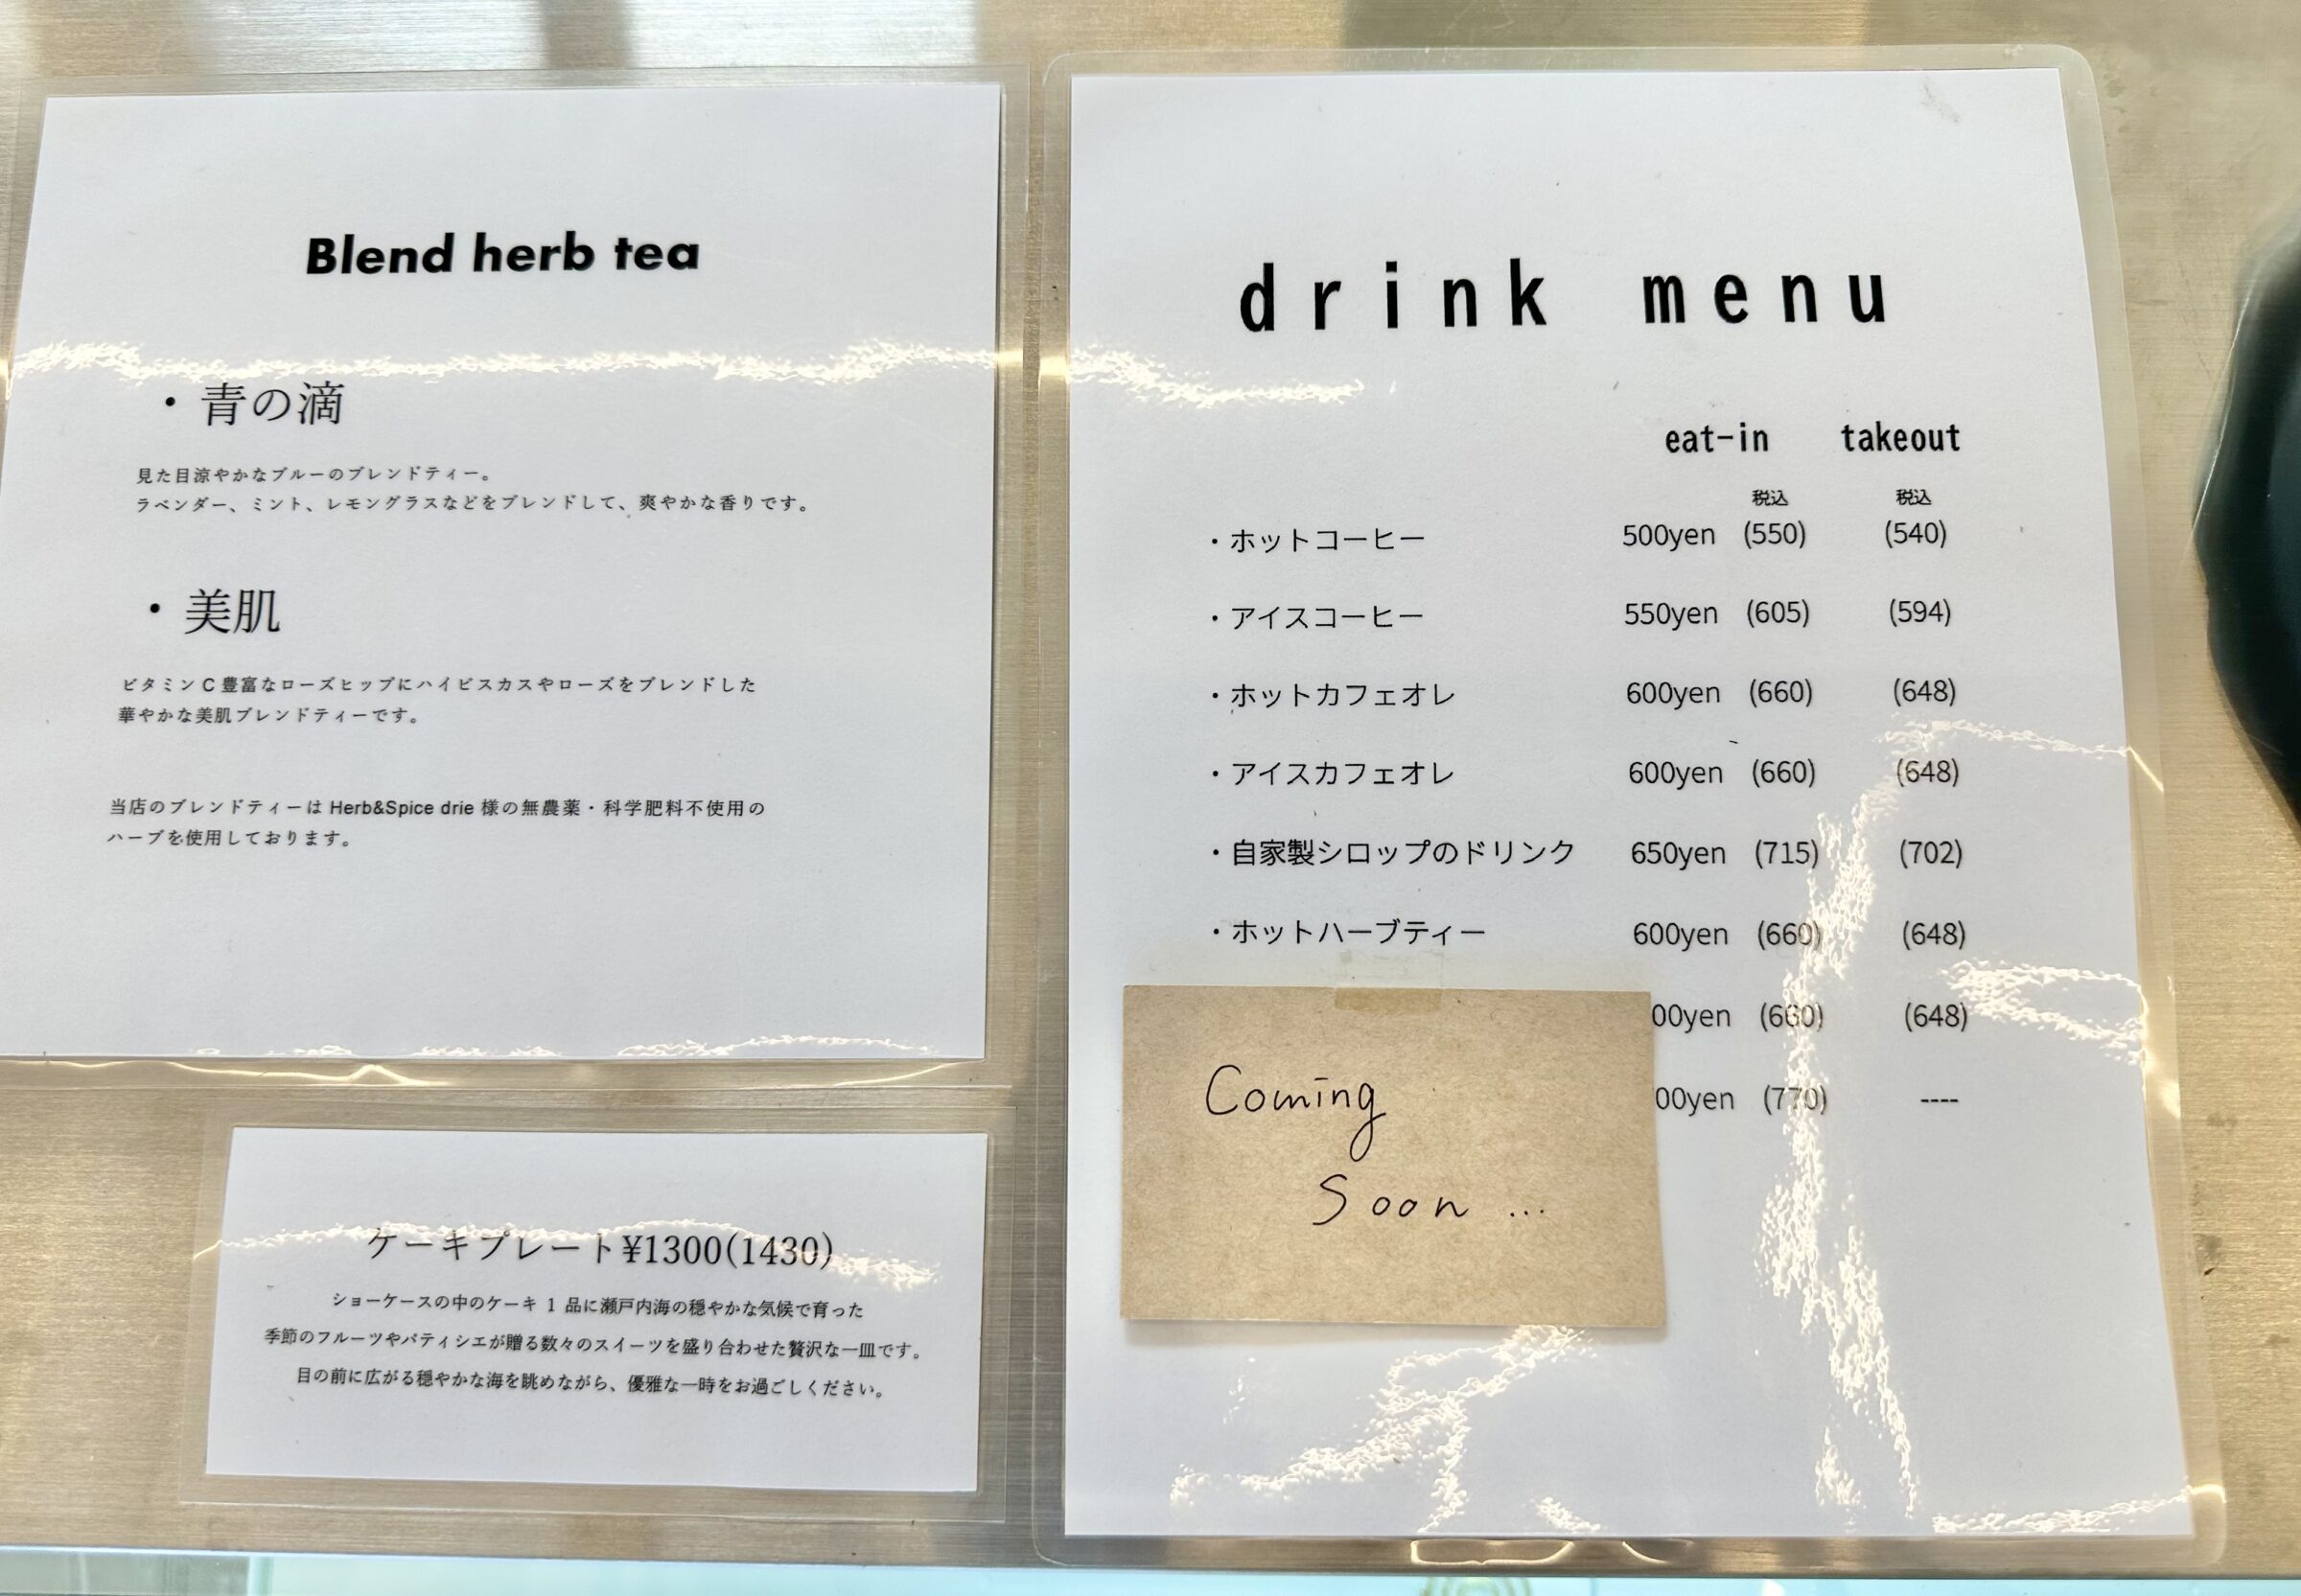 Blend herb tea
・青の滴
見た目涼やかなブルーのブレンドティー。
ラベンダー、ミント、レモングラスなどをブレンドして、爽やかな香りです。
・美肌
ビタミンC豊富なローズヒップにハイビスカスやローズをブレンドした
華やかな美肌ブレンドティーです。
当店のブレンドティーは Herb&Spice drie 様の無農薬・科学肥料不使用の
ハーブを使用しております。
ケーキプレート¥1300(1430)
ショーケースの中のケーキ 1 品に瀬戸内海の穏やかな気候で育った
季節のフルーツやパティシエが贈る数々のスイーツを盛り合わせた贅沢な一皿です。
目の前に広がる穏やかな海を眺めながら、優雅な一時をお過ごしください。
drink menu
eat-in takeout
税込 税込
・ホットコーヒー 500yen (550) (540)
・アイスコーヒー 550yen (605) (594)
・ホットカフェオレ 600yen (660) (648)
・アイスカフェオレ 600yen (660) (648)
・自家製シロップのドリンク 650yen (715) (702)
・ホットハーブティー 600yen (660) (648)
00yen (660) (648)
00yen (770) ----
Coming
Soon ...